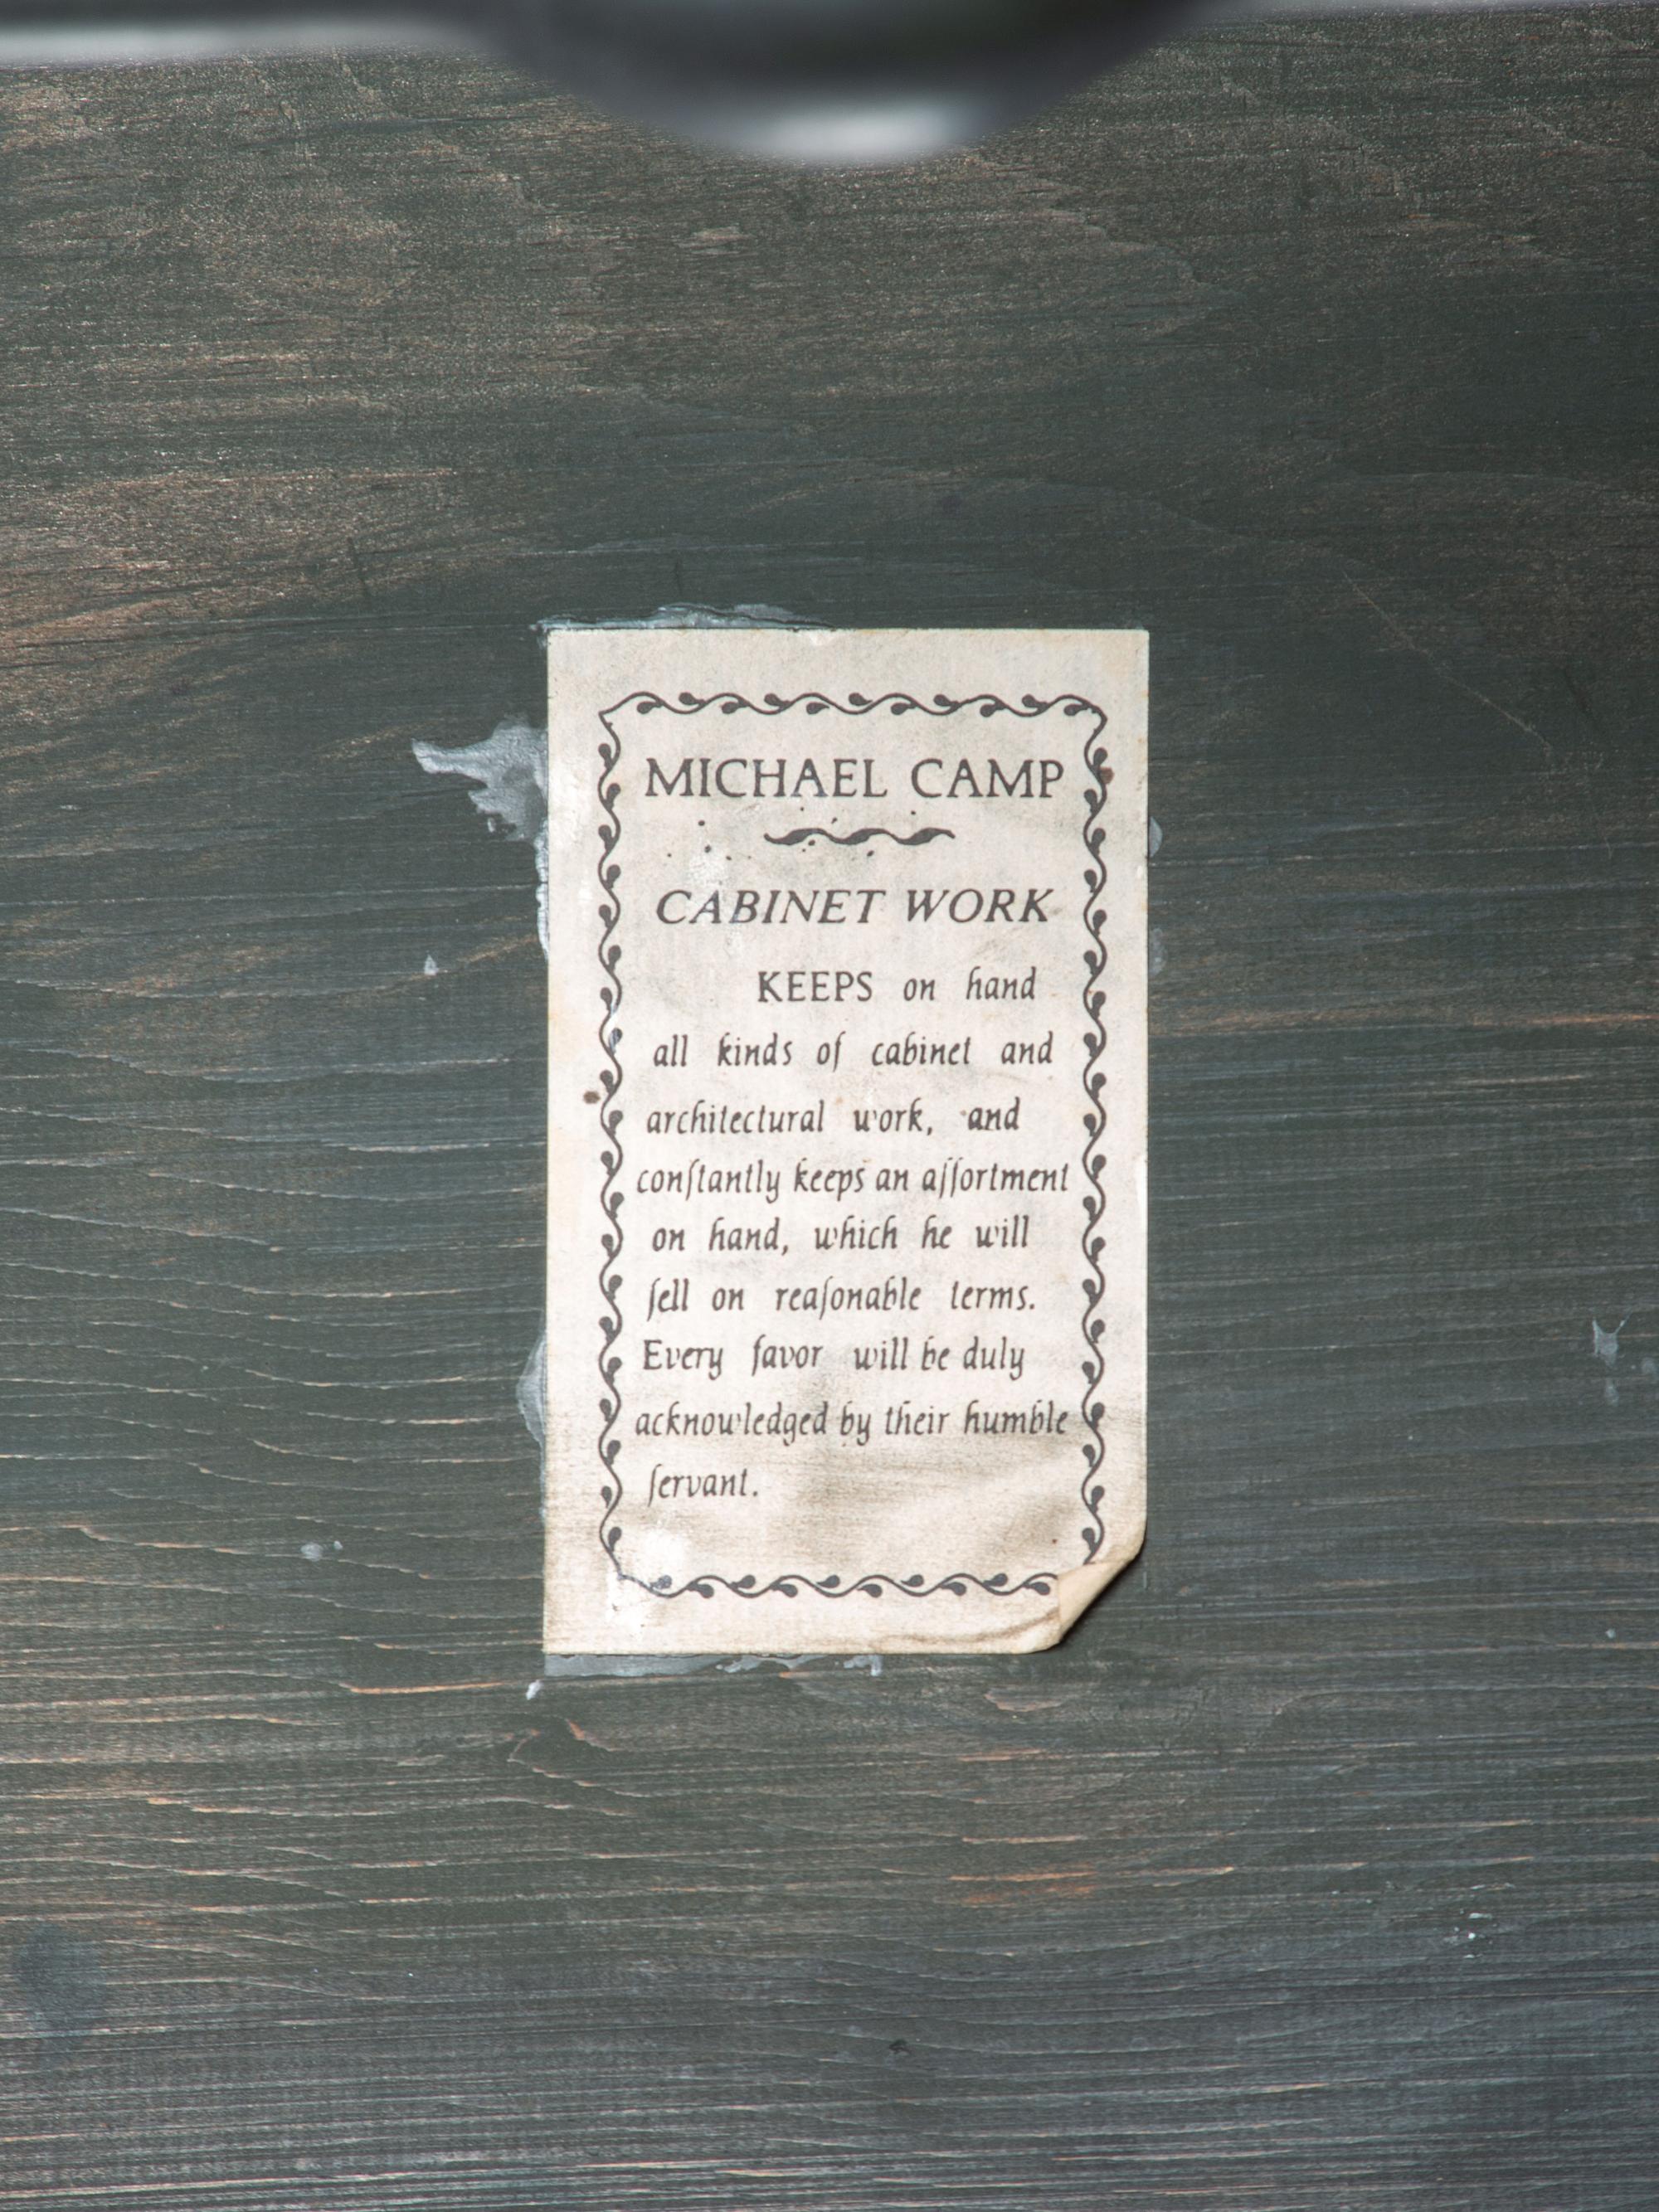 MICHAEL CAMP
CABINET WORK
KEEPS on hand
all kinds of cabinet and
architectural work, and
conſtantly keeps an aſſortment
on hand, which he will
ſell on reaſonable terms.
Every favor will be duly
acknowledged by their humble
ſervant.